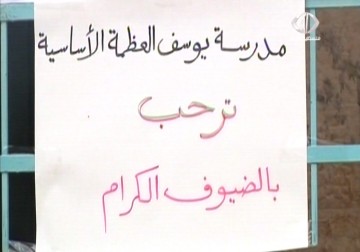 مدرسة يوسف العظمة الأساسية
ترحب
بالضيوف الكرام